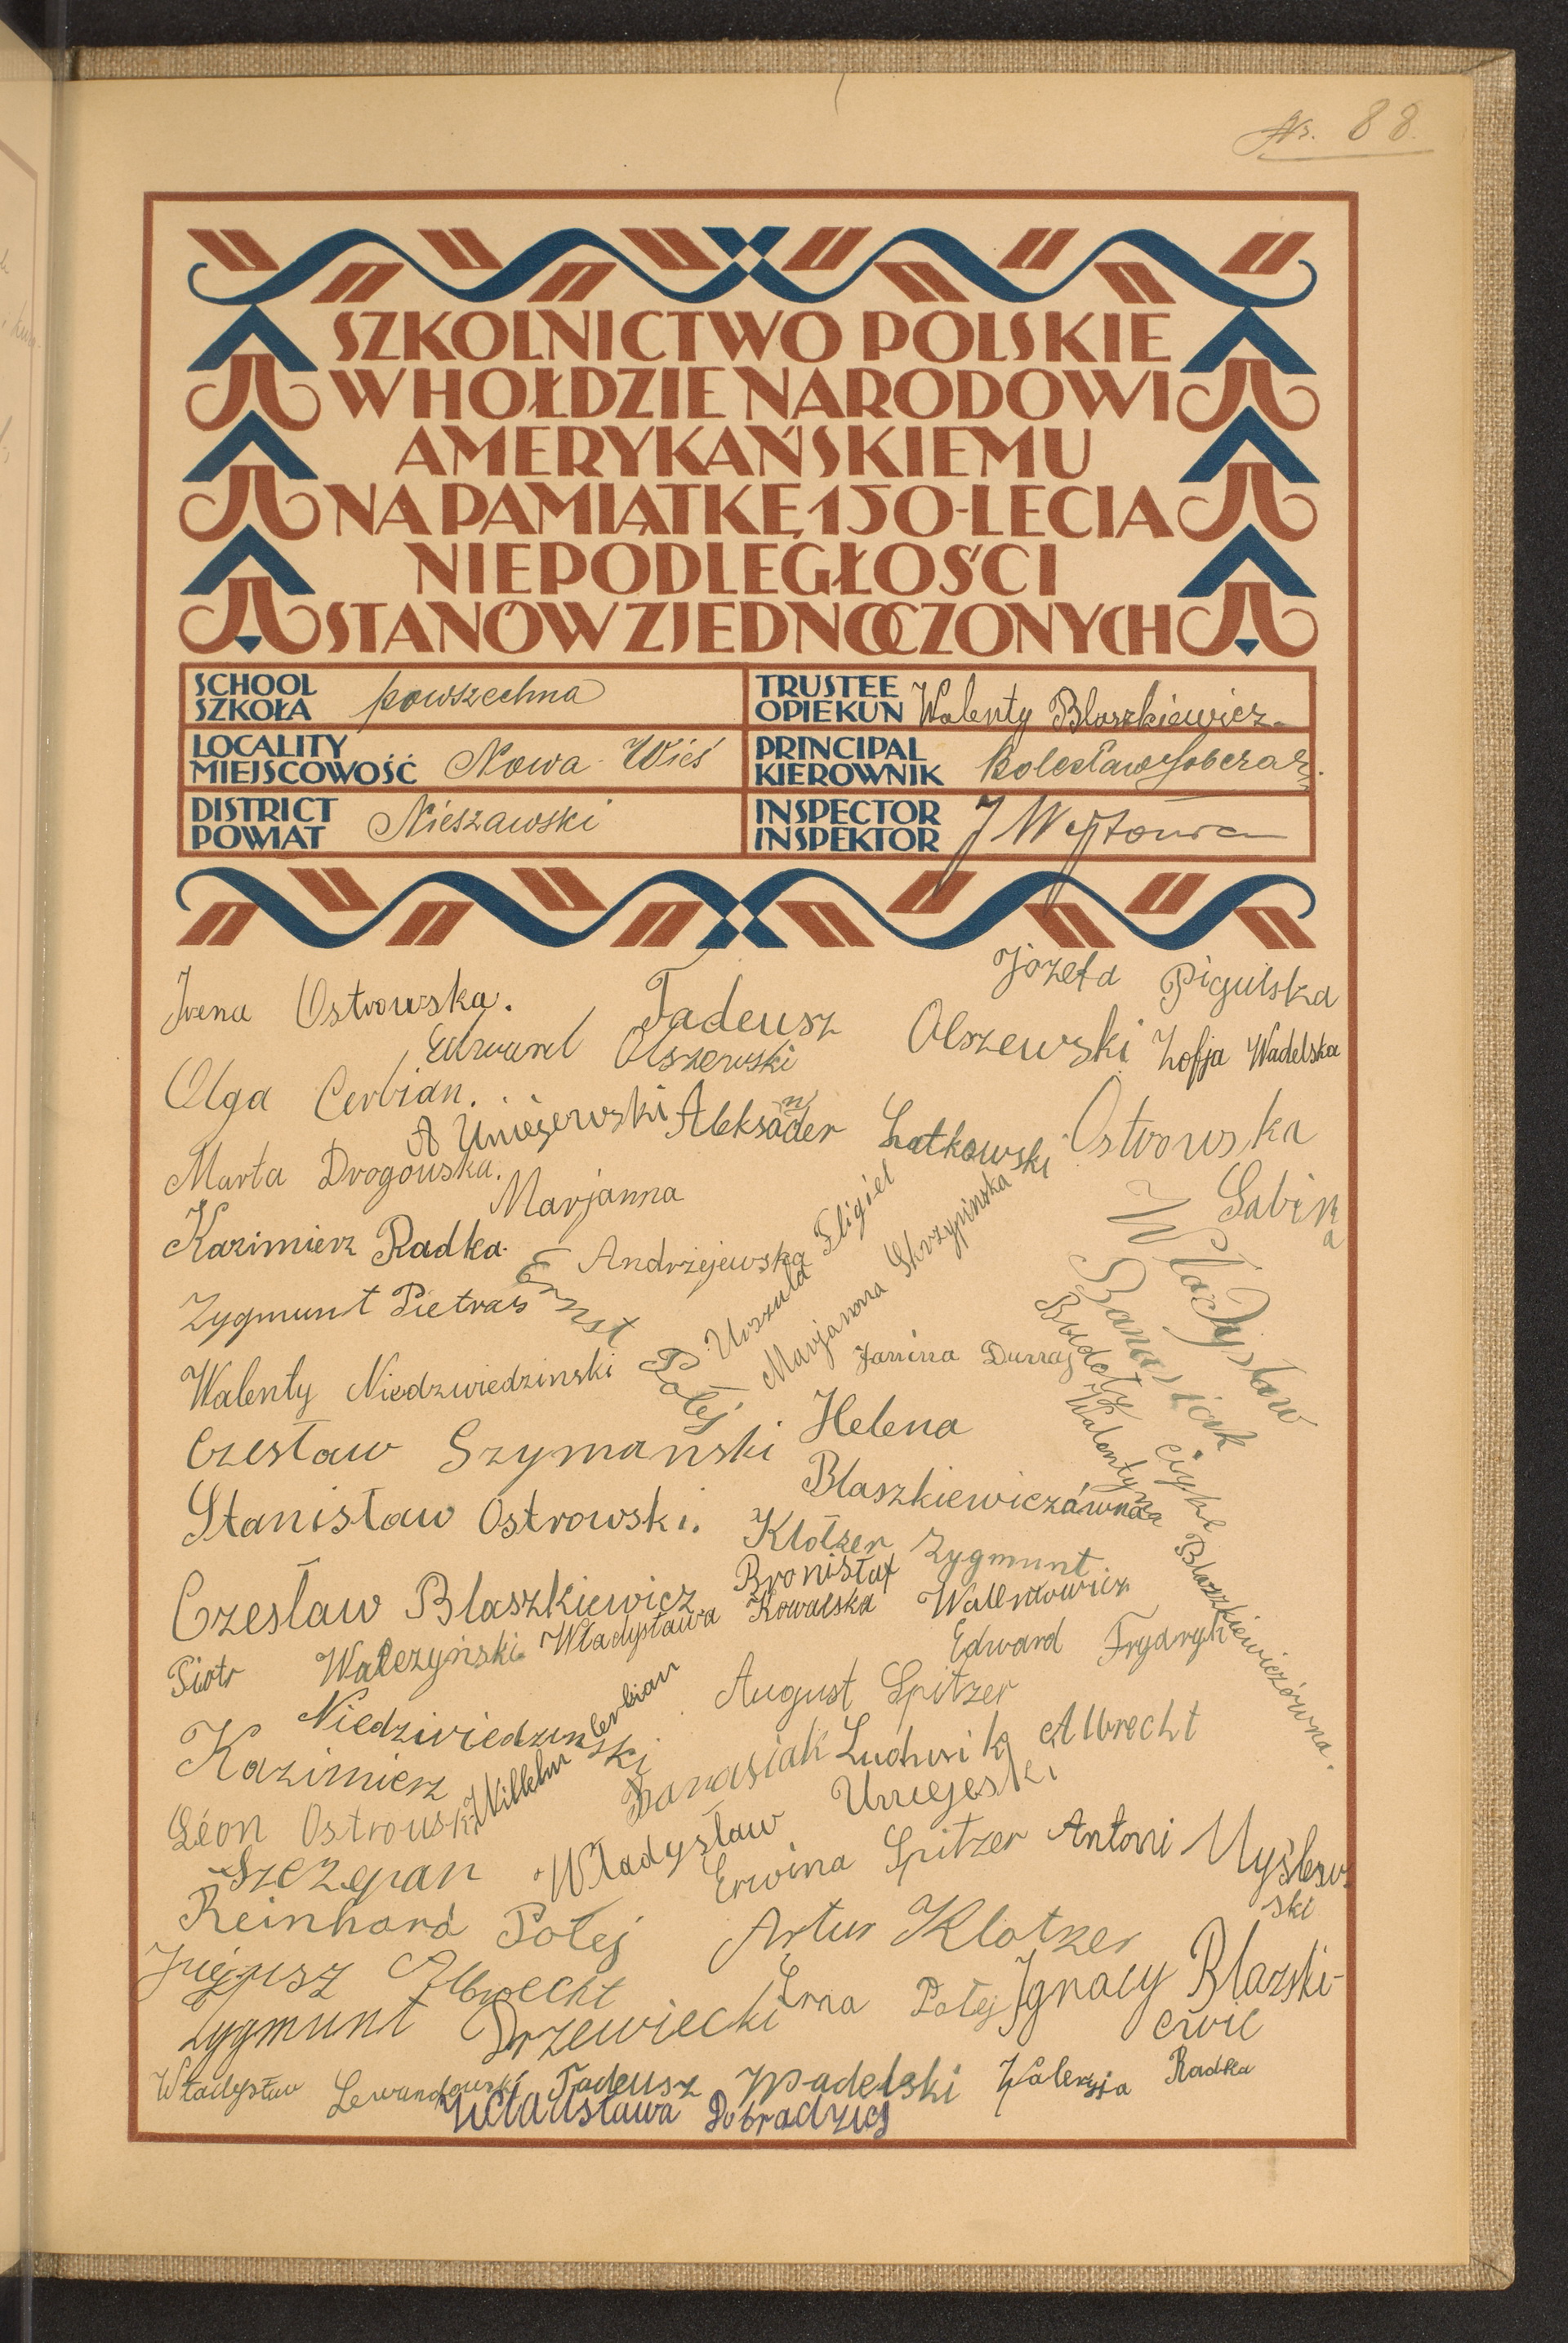 Nr. 88.
SZKOLNICTWO POLSKIE
W HOŁDZIE NARODOWI
AMERYKAŃSKIEMU
NA PAMIĄTKĘ 150-LECIA
NIEPODLEGŁOŚCI
STANÓW ZJEDNOCZONYCH
SCHOOL
SZKOŁA
powszechna
TRUSTEE
OPIEKUN
Walenty Blaszkiewicz
LOCALITY
MIEJSCOWOŚĆ
Nowa-Wieś
PRINCIPAL
KIEROWNIK
Bolesław Sobczak
DISTRICT
POWIAT
Nieszawski
INSPECTOR
INSPEKTOR
Józefa Pigulska
Irena Ostrowska.
Tadeusz Olszewski
Zofja Wadelska
Edward Olszewski
Olga Cerbian.
A Uniejewski
Aleksander Latkowski
Ostrowska
Sabina
Marta Drogowska.
Marjanna
Andrzejewska
Kazimierz Radka
Urszula Fligiel
Marjanna Skrzypinska
Władysław
Banasiak
Zygmunt Pietras
Ernst Połej
Janina Durraj
Walenty Niedzwiedzinski
Helena
Blaszkiewiczówna
Czesław Szymanski
Walentyna Blaszkiewiczówna.
Stanisław Ostrowski.
Klotzer Zygmunt
Bronisław
Walenkowicz
Czesław Blaszkiewicz
Władysława Kowalska
Piotr Walczyński
Edward Frydrych
August Spitzer
Niedzwiedzinski
Kazimierz
Willehm Cerbian
Banasiak
Władysław
Ludwik Albrecht
Leon Ostrowski
Uniejeski
Szczepan
Erwina Spitzer
Antoni Myślewski
Reinhard Połej
Artur Klotzer
Albrecht
Erna Połej
Ignacy Blazkiewic
Zygmunt Drzewiecki
Władysław Lewandowski
Tadeusz Wadelski
Walerja Radka